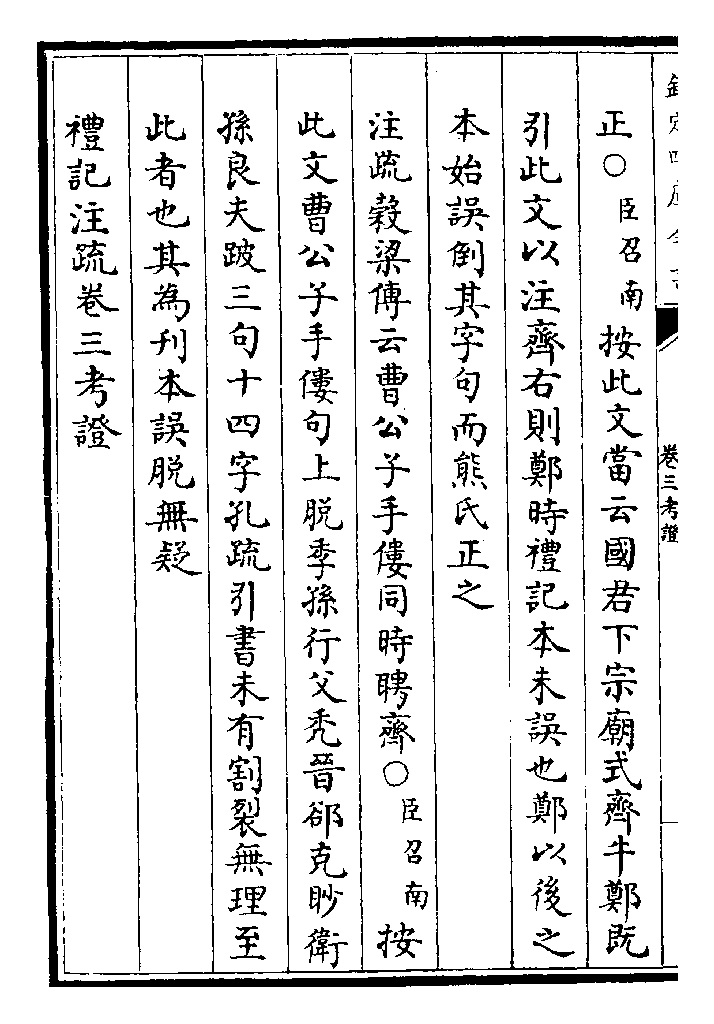 欽定四庫全書
卷三考證
正○臣召南按此文當云國君下宗廟式齊牛鄭既
引此文以注齊右則鄭時禮記本未誤也鄭以後之
本始誤倒其字句而熊氏正之
注疏穀梁傳云曹公子手僂同時聘齊○臣召南按
此文曹公子手僂句上脱季孫行父秃晉郤克眇衛
孫良夫跛三句十四字孔疏引書未有割裂無理至
此者也其為刋本誤脱無疑
禮記注疏卷三考證